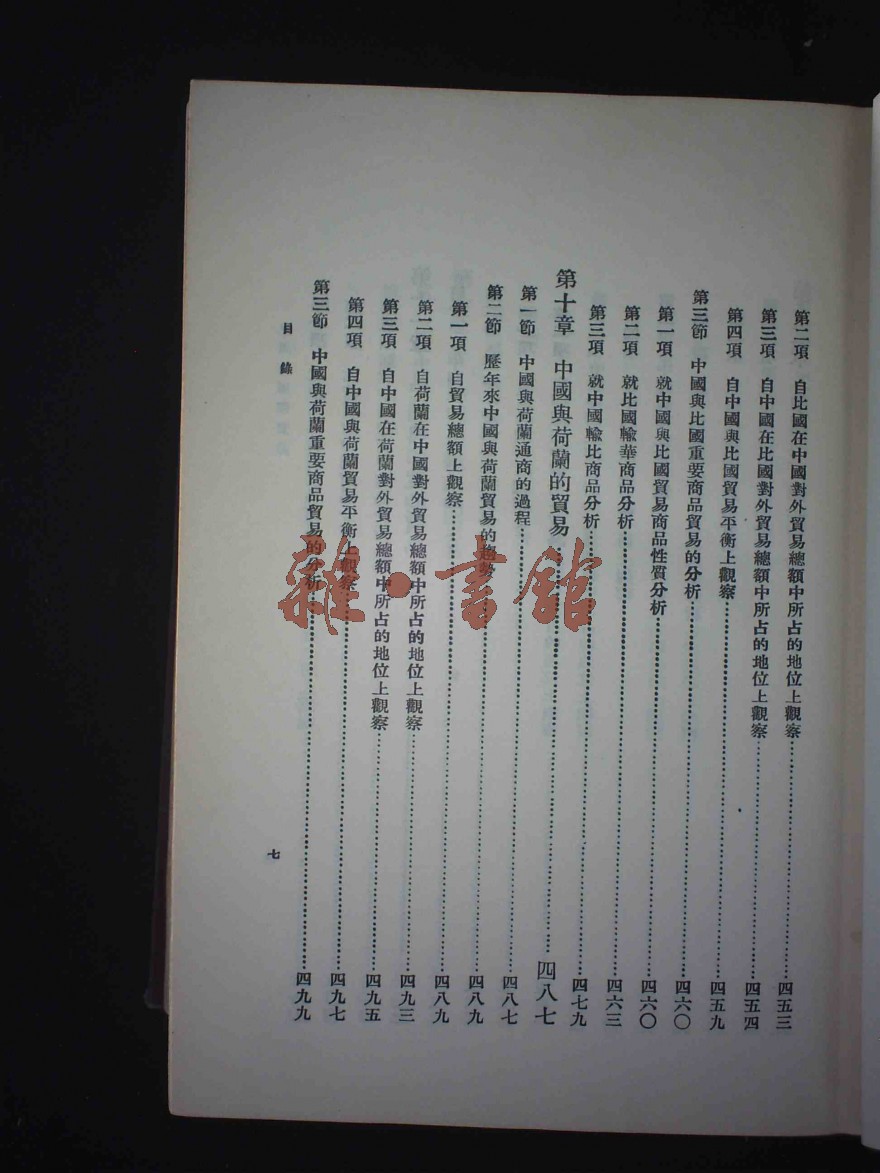 第二項　自比國在中國對外貿易總額中所占的地位上觀察……四五三
第三項　自中國在比國對外貿易總額中所占的地位上觀察……四五四
第四項　自中國與比國貿易平衡上觀察……四五九
第三節　中國與比國重要商品貿易的分析……四六〇
第一項　就中國與比國貿易商品性質分析……四六〇
第二項　就比國輸華商品分析……四六三
第三項　就中國輸比商品分析……四七九
第十章　中國與荷蘭的貿易……四八七
第一節　中國與荷蘭通商的過程……四八七
第二節　歷年來中國與荷蘭貿易的趨勢……四八九
第一項　自貿易總額上觀察……四八九
第二項　自荷蘭在中國對外貿易總額中所占的地位上觀察……四九三
第三項　自中國在荷蘭對外貿易總額中所占的地位上觀察……四九五
第四項　自中國與荷蘭貿易平衡上觀察……四九七
第三節　中國與荷蘭重要商品貿易的分析……四九九
目錄
七
雜·書館